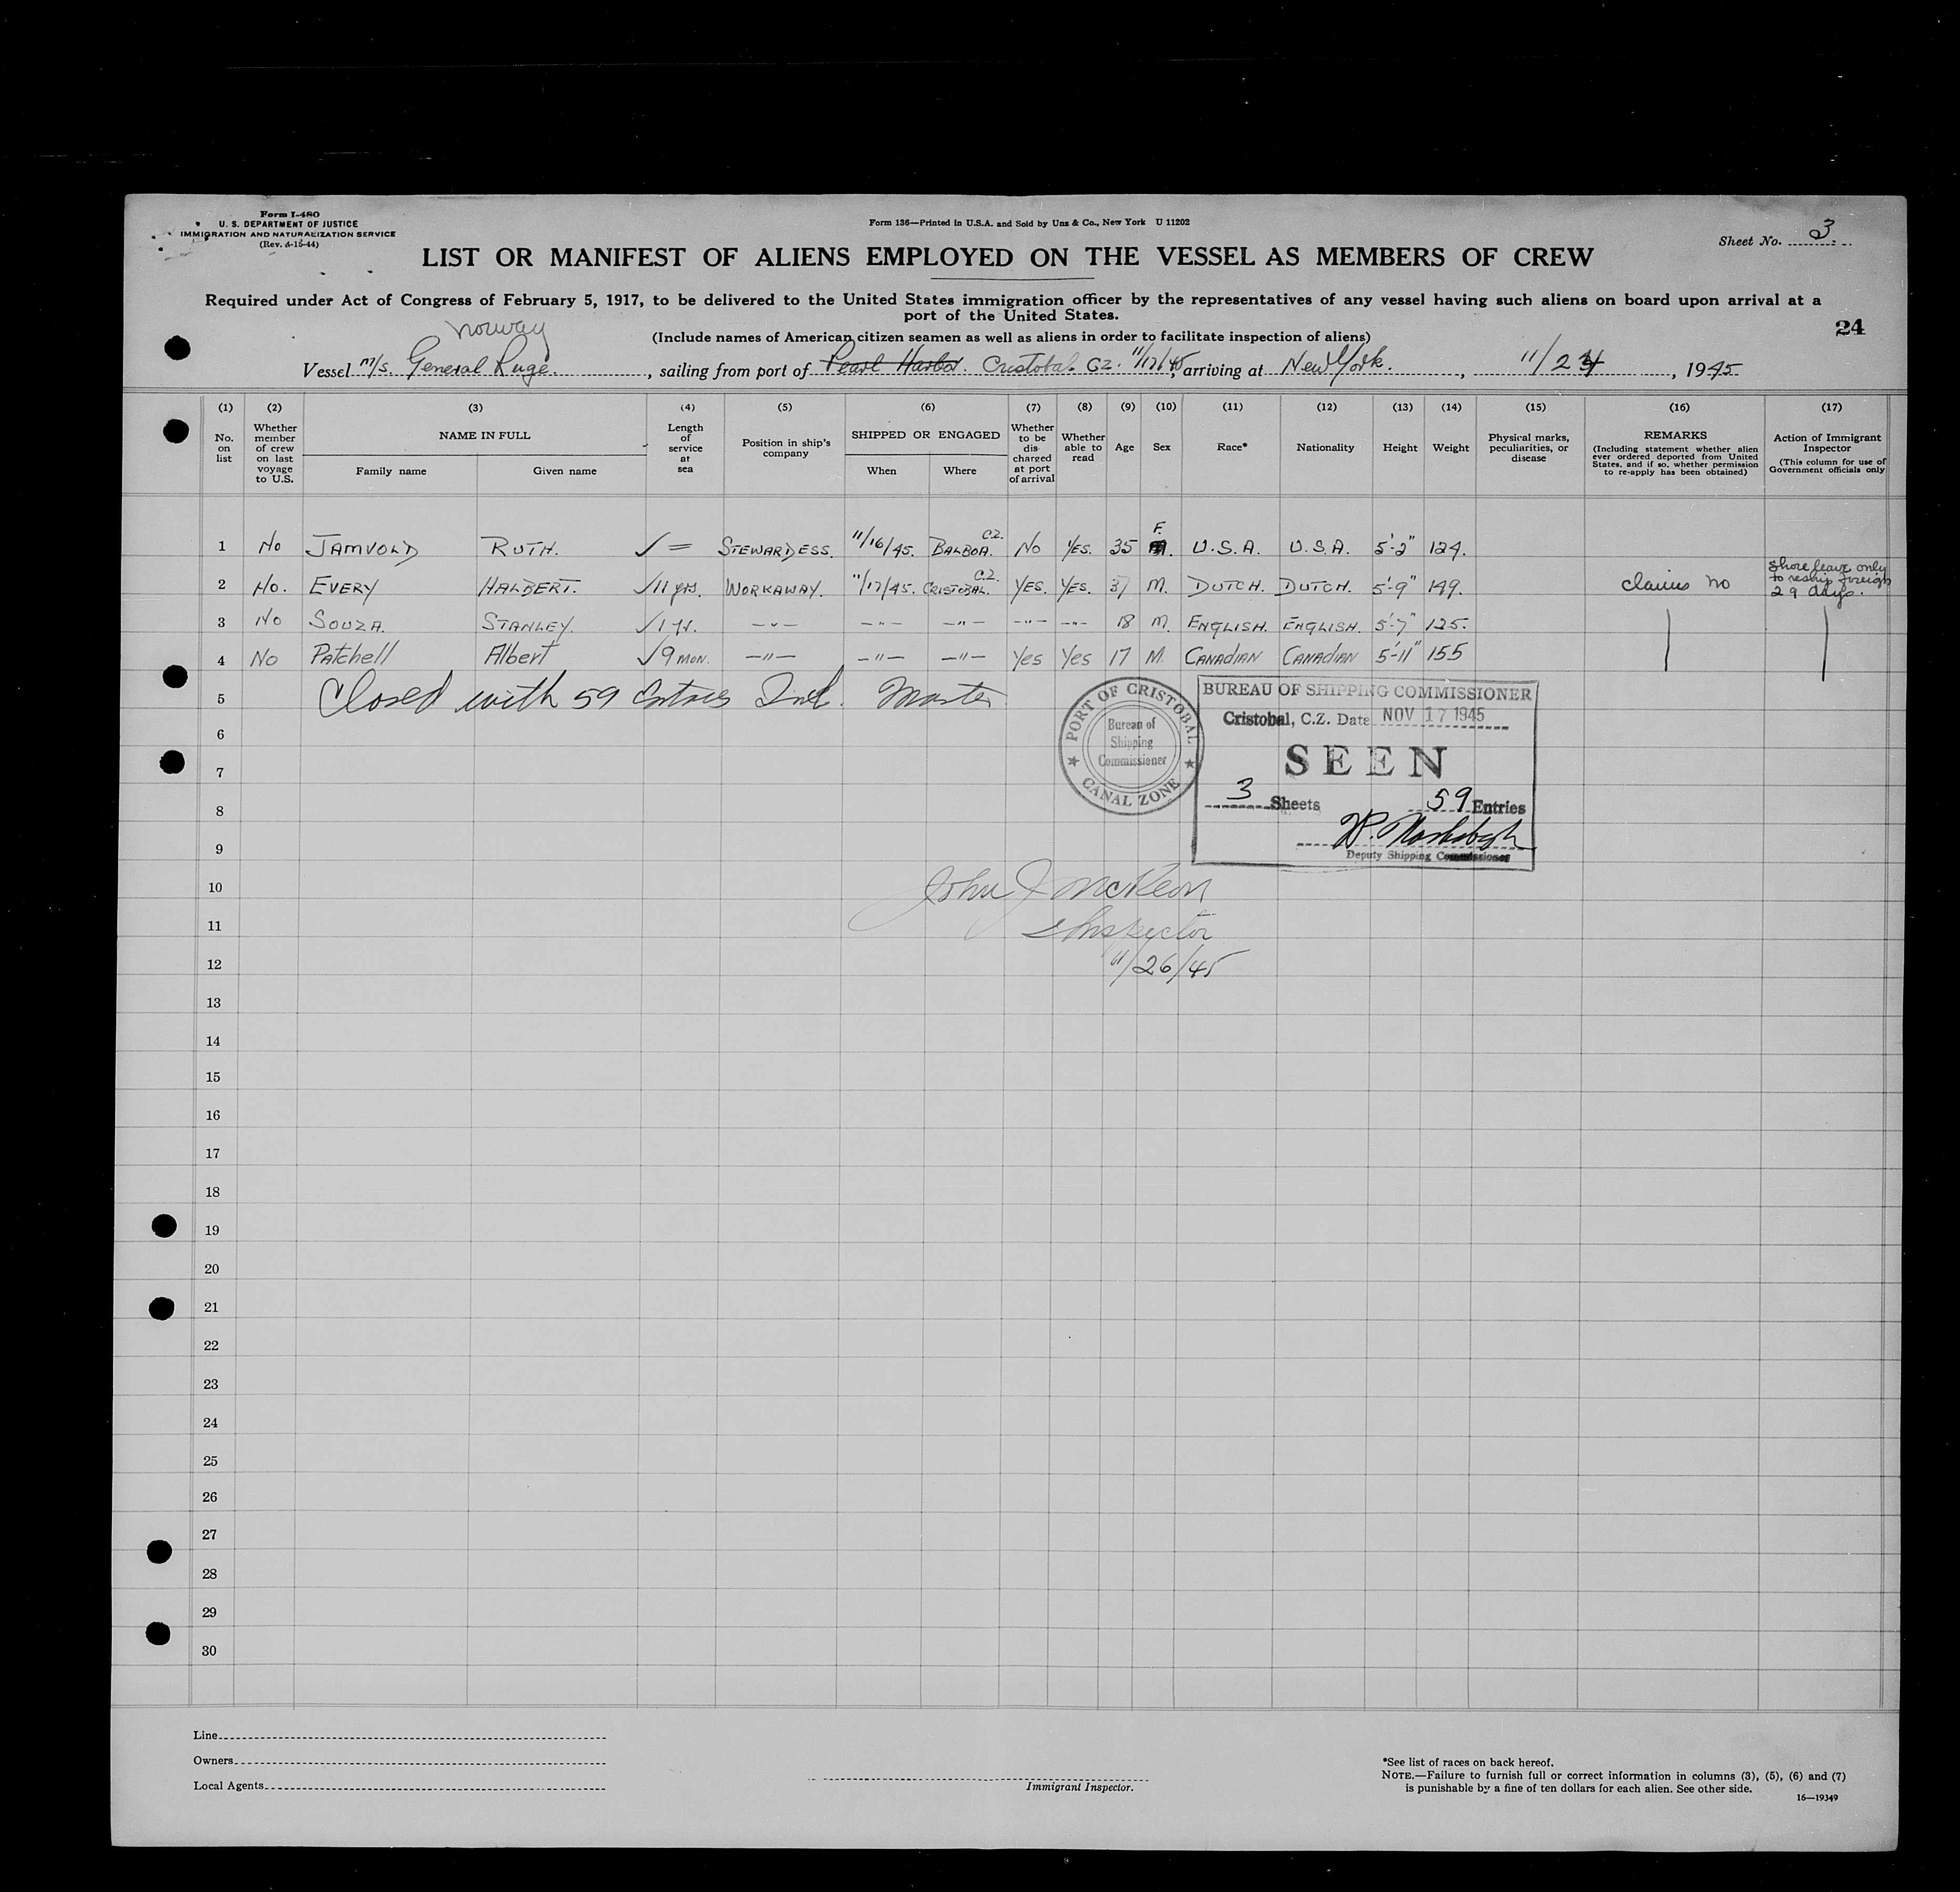 Form I-480
U. S. DEPARTMENT OF JUSTICE
IMMIGRATION AND NATURALIZATION SERVICE
(Rev. 4-15-44)
Form 136—Printed in U.S.A. and Sold by Unz & Co., New York U 11202
Sheet No. 3
LIST OR MANIFEST OF ALIENS EMPLOYED ON THE VESSEL AS MEMBERS OF CREW
Required under Act of Congress of February 5, 1917, to be delivered to the United States immigration officer by the representatives of any vessel having such aliens on board upon arrival at a
port of the United States.
(Include names of American citizen seamen as well as aliens in order to facilitate inspection of aliens)
24
Norway
Vessel M/s. General Ruge., sailing from port of Pearl Harbor. Cristobal. CZ. 11/17/45, arriving at New York., 11/24, 1945
(1) (2) (3) (4) (5) (6) (7) (8) (9) (10) (11) (12) (13) (14) (15) (16) (17)
No. on list
Whether member of crew on last voyage to U.S.
NAME IN FULL
Family name
Given name
Length of service at sea
Position in ship's company
SHIPPED OR ENGAGED
When
Where
Whether to be discharged at port of arrival
Whether able to read
Age
Sex
Race*
Nationality
Height
Weight
Physical marks, peculiarities, or disease
REMARKS
(Including statement whether alien ever ordered deported from United States, and if so, whether permission to re-apply has been obtained)
Action of Immigrant Inspector
(This column for use of Government officials only
1 No JAMVOLD RUTH. ✓ = STEWARDESS. 11/16/45. BALBOA. C.Z. No YES. 35 F. U.S.A. U.S.A. 5'-2" 124.
2 No. EVERY HALBERT. ✓11 yrs. WORKAWAY. 11/17/45. CRISTOBAL. C.Z. YES. YES. 37 M. DUTCH. DUTCH. 5'-9" 149. Claims no Shore leave only to reship foreign 29 days.
3 No SOUZA. STANLEY. ✓1 yr. —"— —"— —"— —"— —"— 18 M. ENGLISH. ENGLISH. 5'-7" 125.
4 No Patchell Albert ✓9 MON. —"— —"— —"— Yes Yes 17 M. CANADIAN CANADIAN 5'-11" 155
5 Closed with 59 Entries Incl. Master
PORT OF CRISTOBAL
Bureau of
Shipping
Commissioner
CANAL ZONE
BUREAU OF SHIPPING COMMISSIONER
Cristobal, C.Z. Date NOV 17 1945
SEEN
3 Sheets 59 Entries
Deputy Shipping Commissioner
6
7
8
9
10
John J McKeon
11
Inspector
12
11/26/45
13
14
15
16
17
18
19
20
21
22
23
24
25
26
27
28
29
30
Line
Owners
Local Agents
Immigrant Inspector.
*See list of races on back hereof.
NOTE.—Failure to furnish full or correct information in columns (3), (5), (6) and (7)
is punishable by a fine of ten dollars for each alien. See other side.
16—19349